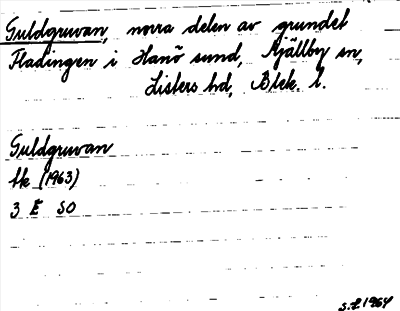 Guldgruvan, norra delen av grundet
Fladingen i Hanö sund, Mjällby sn,
Listers hd, Blek. l.
Guldgruvan
(1963)
3 E SO
1964